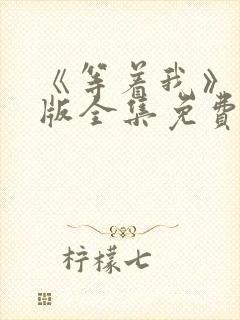 《等着我》
版全集免费
柠檬七